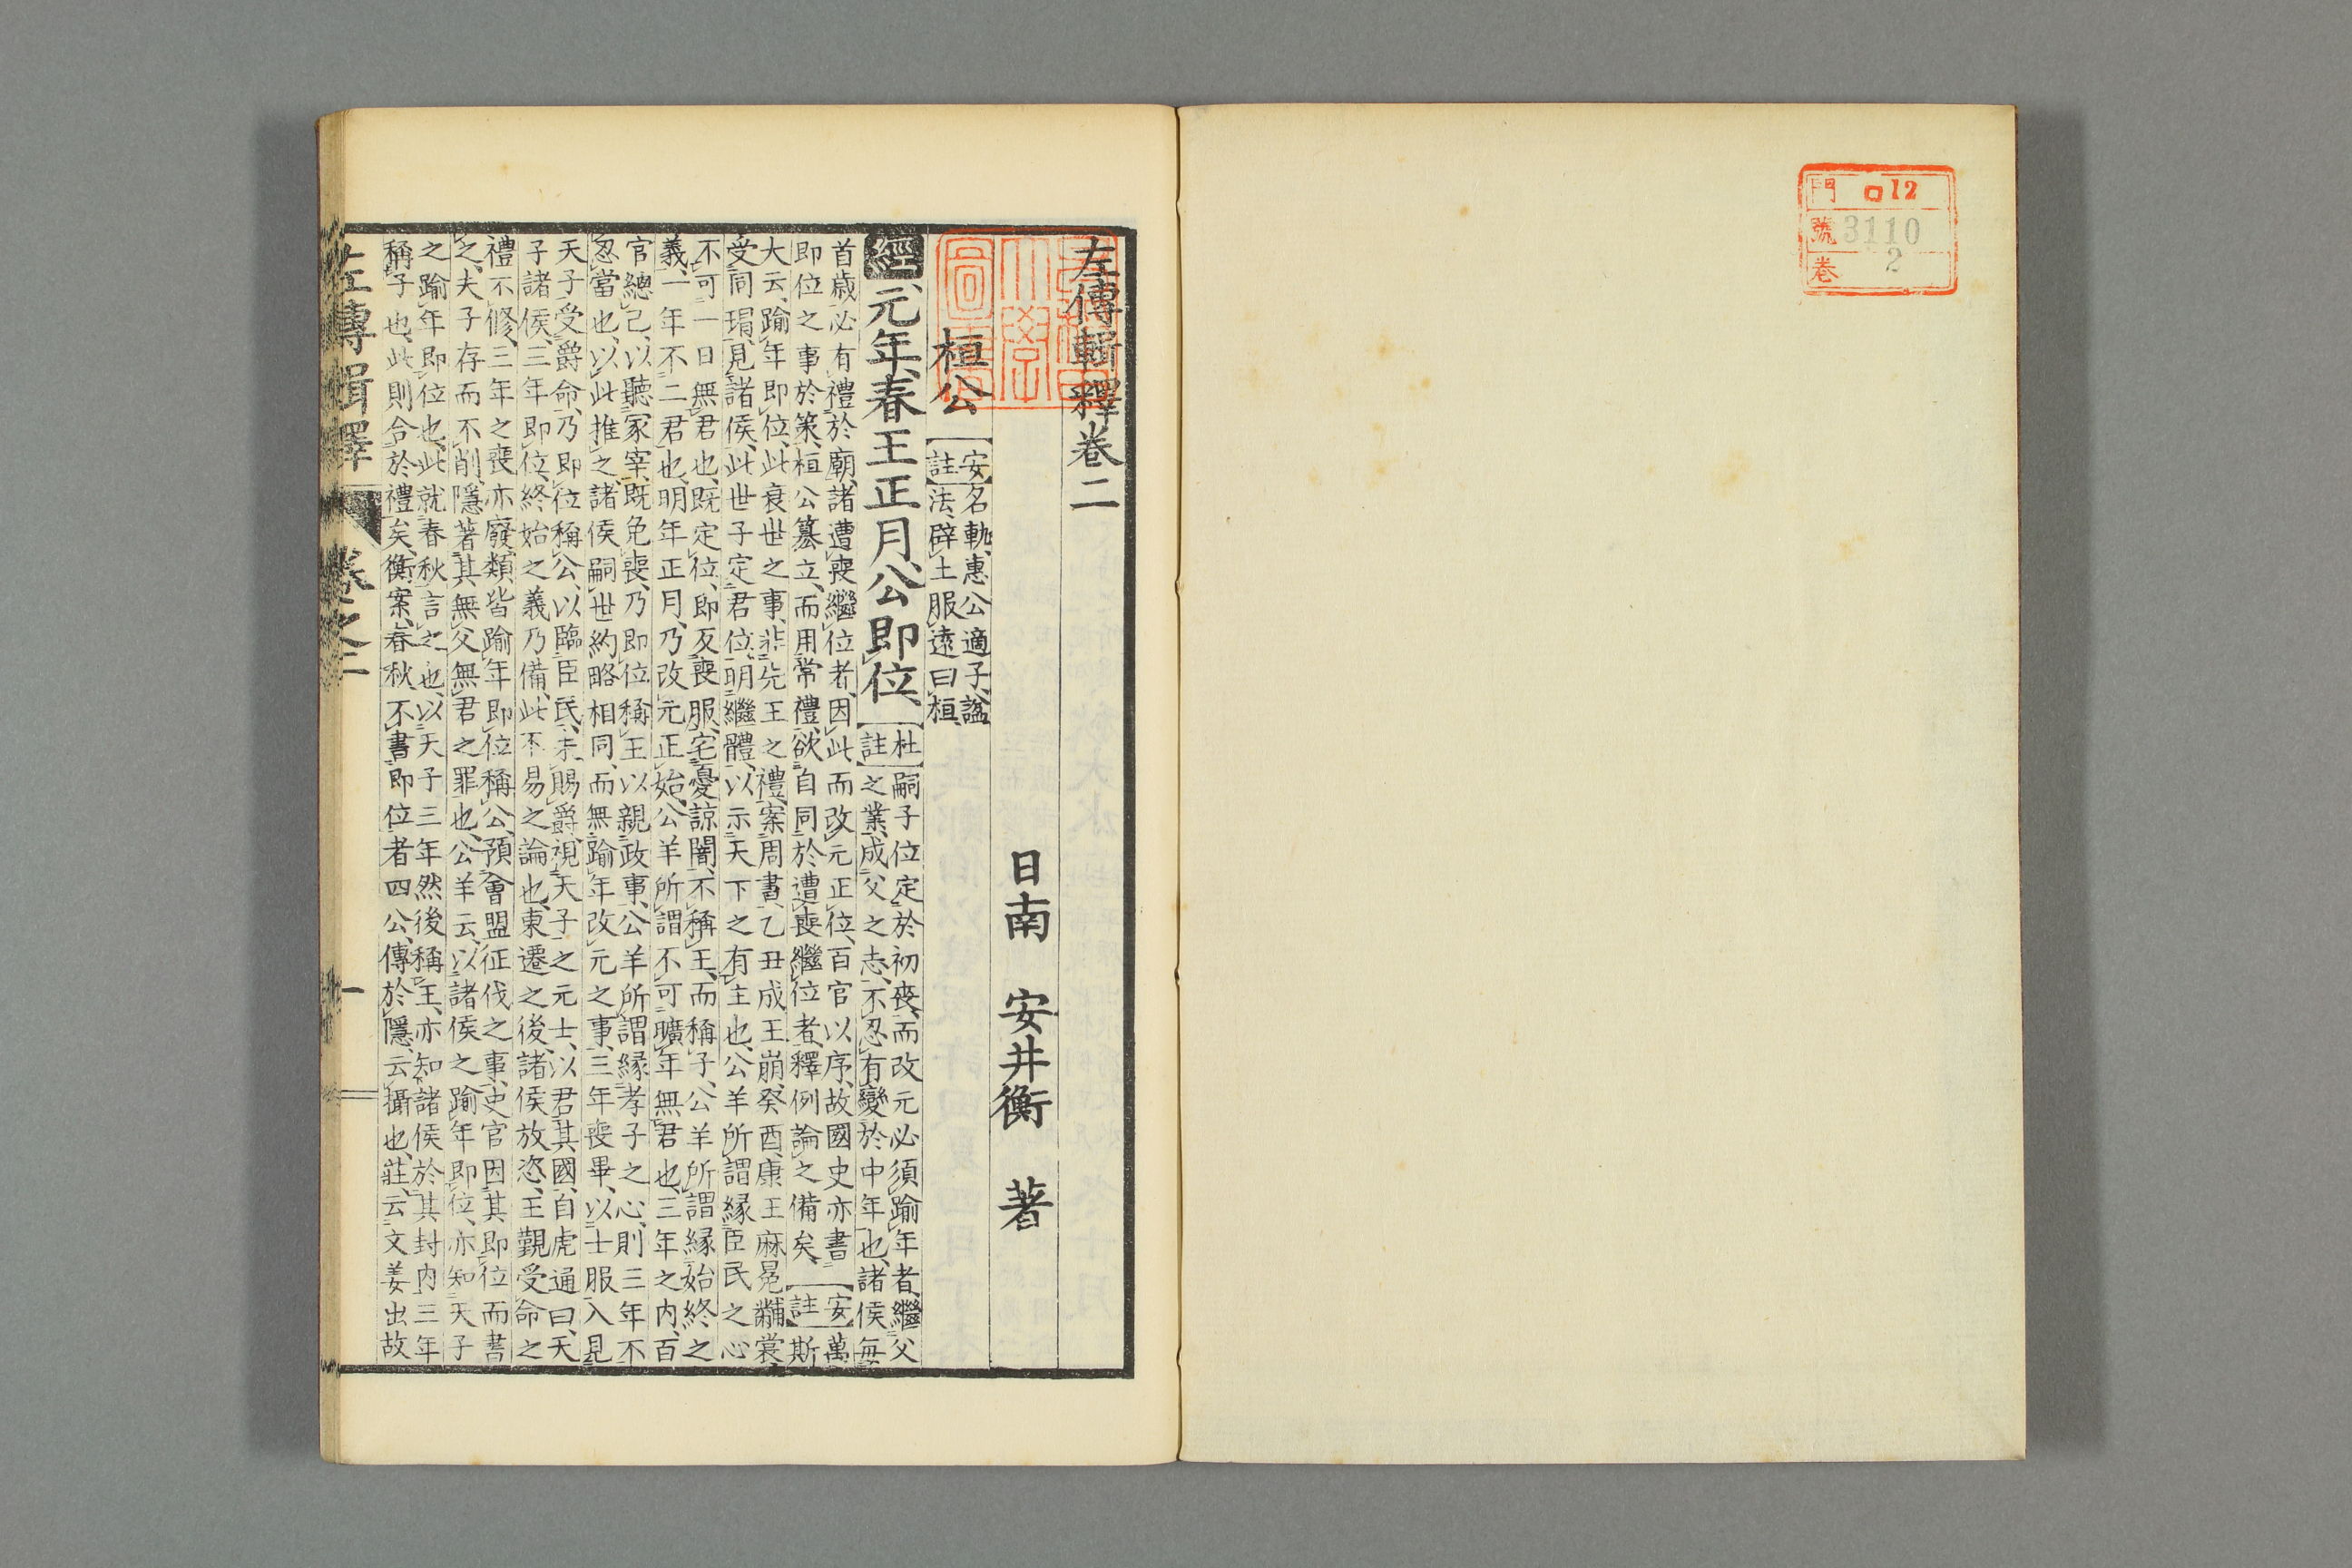 門 ロ12
號 3110
卷 2
左傳輯釋卷二
日南 安井衡 著
桓公
安註
名軌、惠公適子、諡
法、辟土服遠曰桓、
經、元年、春、王正月、公即位、
杜註
嗣子位定於初喪、而改元必須踰年者、繼父
之業、成父之志、不忍有變於中年也、諸侯毎
首歳必有禮於廟、諸遭喪繼位者、因此而改元正位、百官以序、故國史亦書
即位之事於策、桓公簒立、而用常禮、欲自同於遭喪繼位者、釋例論之備矣、
安註
萬
斯
大云、踰年即位、此衰世之事、非先王之禮、案周書、乙丑成王崩、癸酉、康王麻冕黼裳、
受同瑁、見諸侯、此世子定君位、明繼體、以示天下之有主也、公羊所謂緣臣民之心
不可一日無君也、既定位、即反喪服、宅憂諒闇、不稱王、而稱子、公羊所謂緣始終之
義、一年不二君也、明年正月、乃改元正始、公羊所謂不可曠年無君也、三年之内、百
官總己、以聽冢宰、既免喪、乃即位稱王、以親政事、公羊所謂緣孝子之心、則三年不
忍當也、以此推之、諸侯嗣世約略相同、而無踰年改元之事、三年喪畢、以士服入見
天子、受爵命、乃即位稱公、以臨臣民、未賜爵、視天子之元士、以君其國、白虎通曰、天
子諸侯、三年即位、終始之義乃備、此不易之論也、東遷之後、諸侯放恣、王覲受命之
禮不修、三年之喪亦廢、類皆踰年即位稱公、預會盟征伐之事、史官因其即位而書
之、夫子存而不削、隱著其無父無君之罪也、公羊云、以諸侯之踰年即位、亦知天子
之踰年即位也、此就春秋言之也、以天子三年然後稱王、亦知諸侯於其封内三年
稱子也、此則合於禮矣、衡案、春秋不書即位者四公、傳於隱云攝也、莊云文姜出故
左傳輯釋 卷之二 一